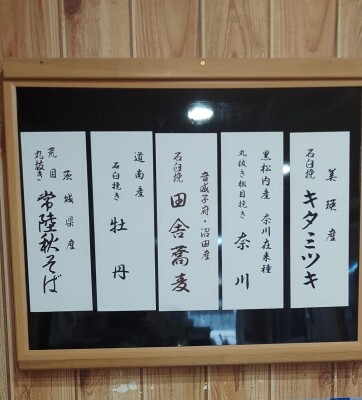 美瑛産
石臼挽 キタミツキ
黒松内産 奈川在来種
丸抜き粗目挽き 奈川
音威子府・沼田産
石臼挽 田舎蕎麦
道南産
石臼挽き 牡丹
茨城県産
荒目 丸抜き 常陸秋そば